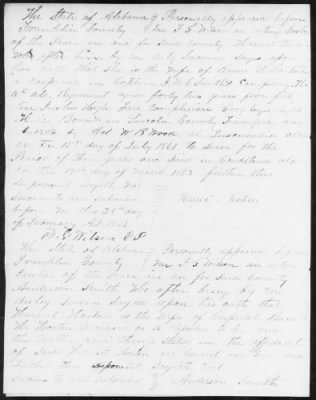 The State of Alabama } Personally appeared before
Franklin County } me F. G. Wilson an acting Justice
of the Peace in and for said County Harriet
who after being by me duly sworn says upon
her oath that she is the wife of
a Corporal in Captain Company the
16th Ala Regiment aged forty two years five feet
ten inches high fair complexion Grey eyes
Born in Lincoln County Tennessee and
by Col W B Wood at Tuscumbia Ala
on the 15th day of July 1861 to serve for the
Period of three years and died in
on the 19th day of March 1862 further this
deponent Sayeth Not
Sworn to and subscribed
before me this 28th day
of February A D 1863
F. G. Wilson J.P.
The State of Alabama } Personally appeared before
Franklin County } me F. G. Wilson an acting
Justice of the Peace in and for said County
Anderson Smith who after being by me
duly sworn says upon his oath that
Harriet Horton is the wife of Corporal
H. Horton deceased
the matters and things stated in the affidavit
of said Harriet Horton are correct and
further this deponent Sayeth Not
Sworn to and subscribed } Anderson Smith